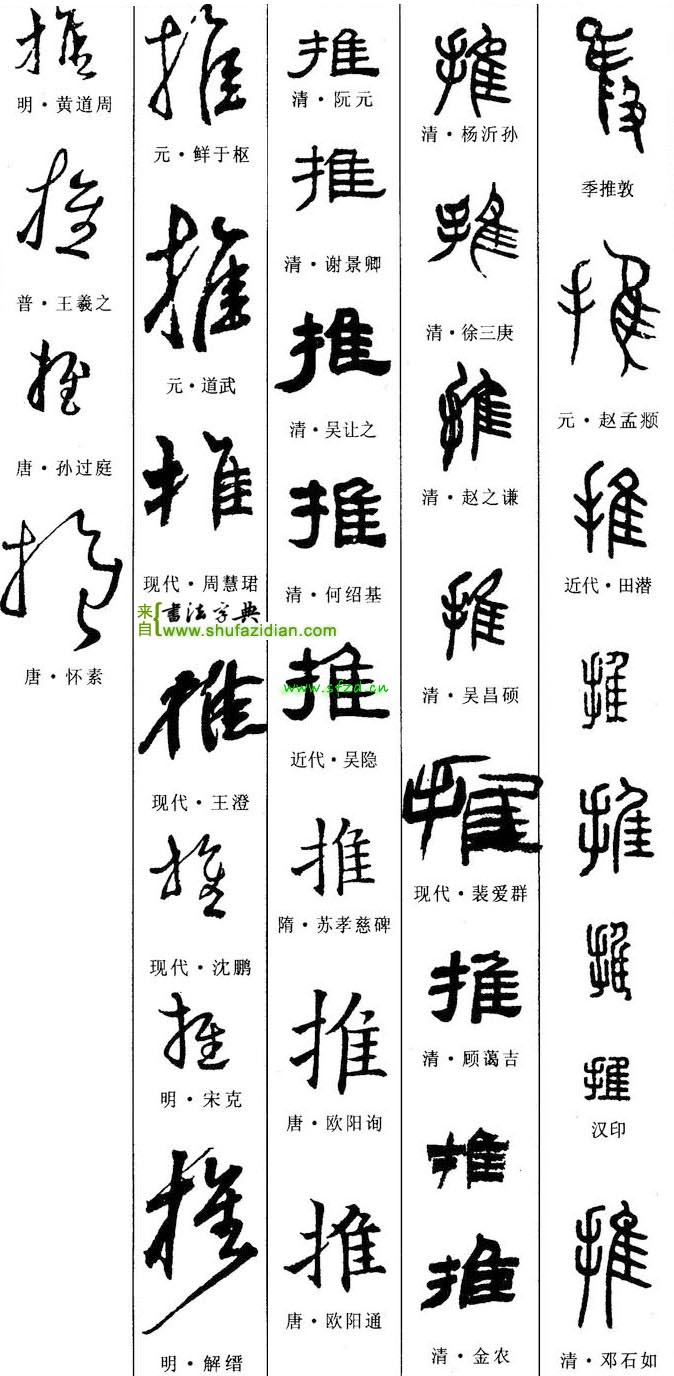 推
季推敦
推
元·赵孟𫖯
推
近代·田潜
推
推
推
推
汉印
推
清·邓石如
推
清·杨沂孙
推
清·徐三庚
推
清·赵之谦
推
清·吴昌硕
推
现代·裴爱群
推
清·顾蔼吉
推
推
清·金农
推
清·阮元
推
清·谢景卿
推
清·吴让之
推
清·何绍基
推
www.sfzd.cn
近代·吴隐
推
隋·苏孝慈碑
推
唐·欧阳询
推
唐·欧阳通
推
元·鲜于枢
推
元·道武
推
现代·周慧珺
来自 書法字典
www.shufazidian.com
推
现代·王澄
推
现代·沈鹏
推
明·宋克
推
明·解缙
推
明·黄道周
推
普·王羲之
推
唐·孙过庭
推
唐·怀素